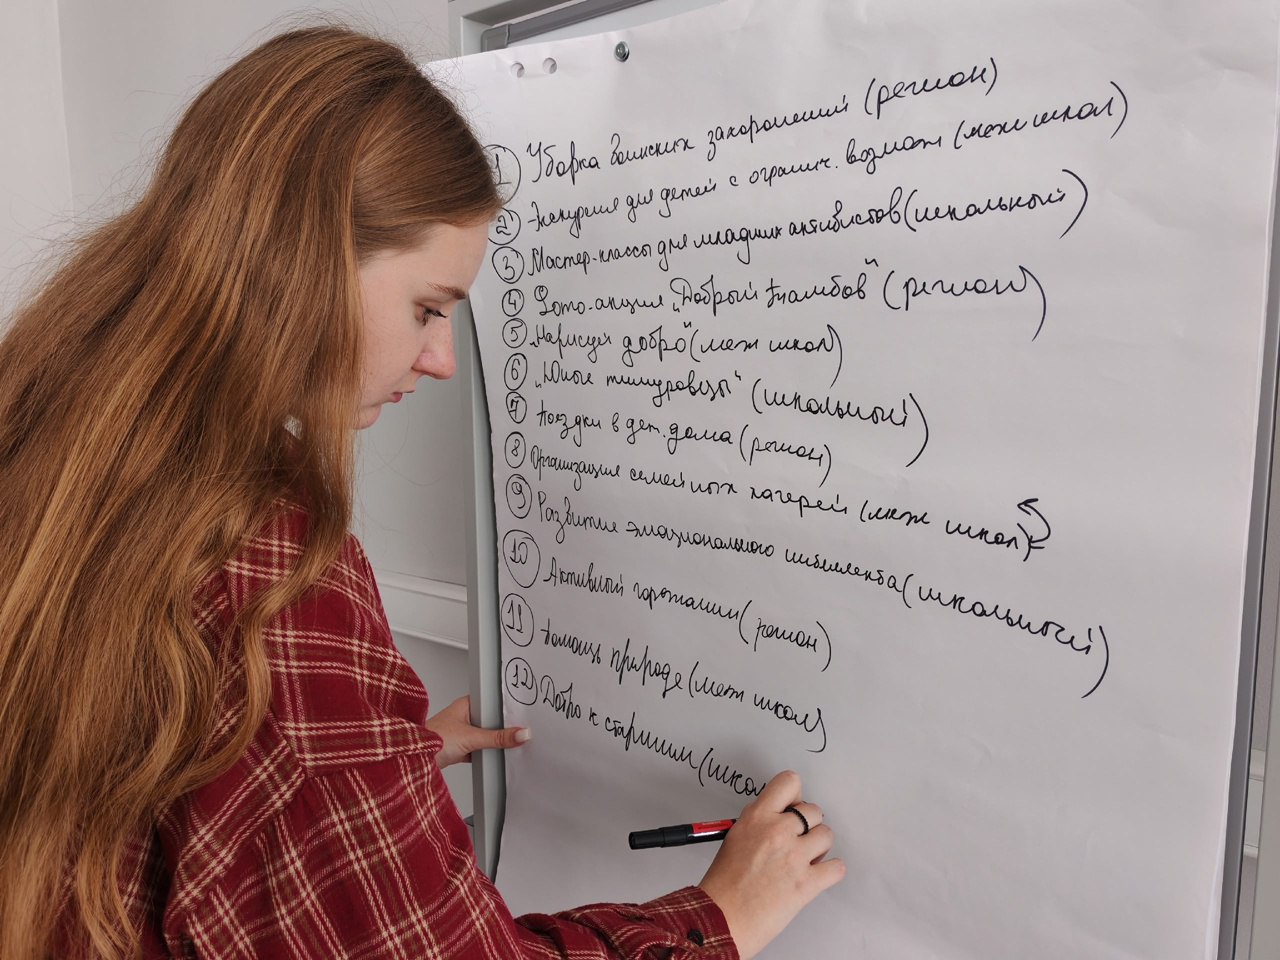 1 Уборка воинских захоронений (регион)
2 Экскурсия для детей с огранич. возмож (меж школ)
3 Мастер-классы для младших активистов (школьный)
4 Фото-акция „Добрый Тамбов" (регион)
5 „Нарисуй добро" (меж школ)
6 „Юные тимуровцы" (школьный)
7 Поездки в дет. дома (регион)
8 Организация семейных лагерей (меж школ)
9 Развитие эмоционального интеллекта (школьный)
10 Активный горожанин (регион)
11 Помощь природе (меж школ)
12 Добро к старшим (школ